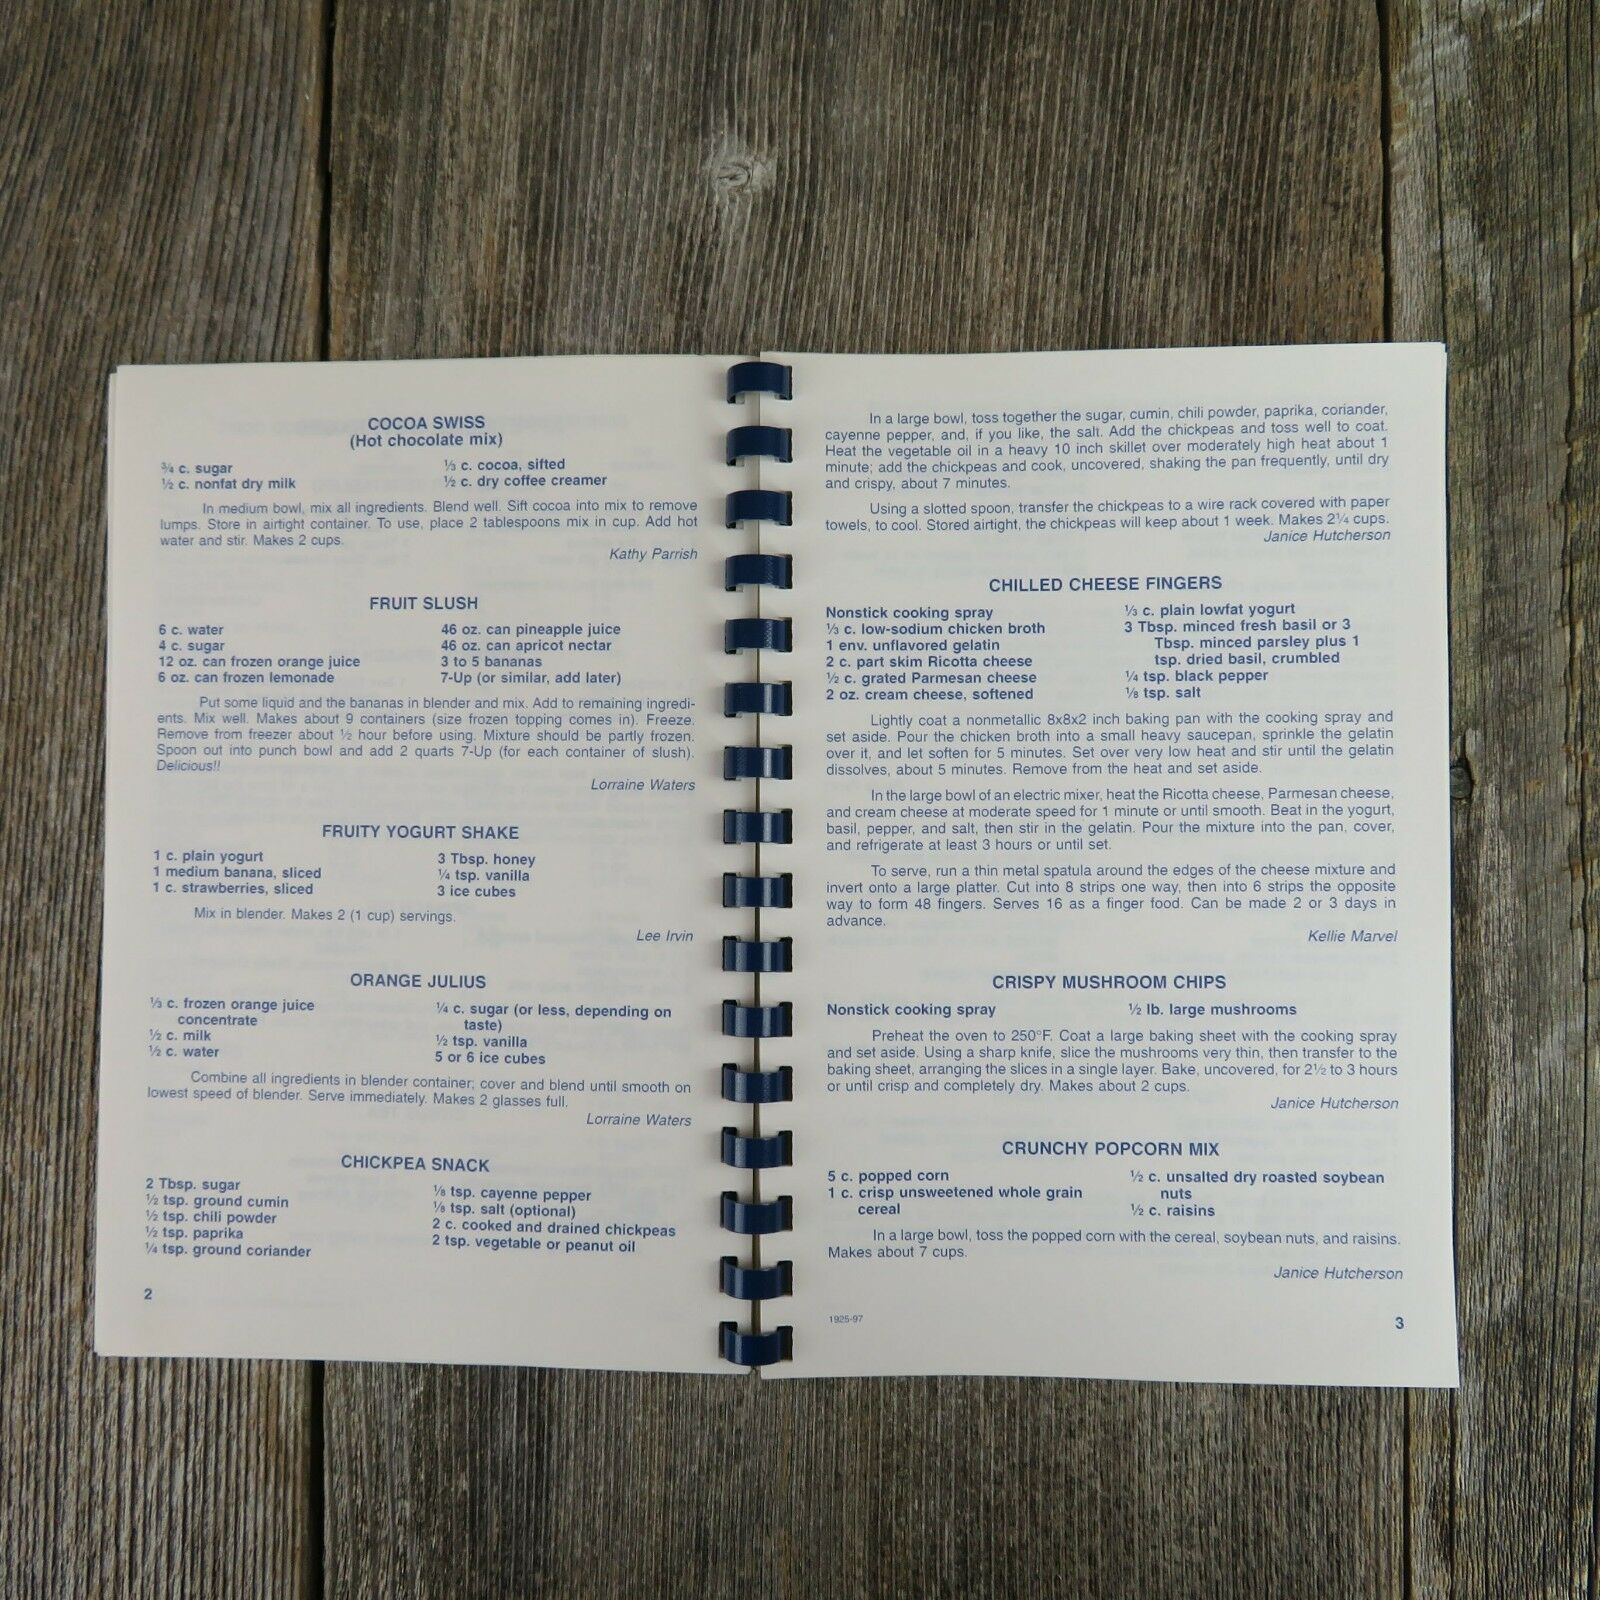 COCOA SWISS
(Hot chocolate mix)
¾ c. sugar
½ c. nonfat dry milk
⅓ c. cocoa, sifted
½ c. dry coffee creamer
In medium bowl, mix all ingredients. Blend well. Sift cocoa into mix to remove
lumps. Store in airtight container. To use, place 2 tablespoons mix in cup. Add hot
water and stir. Makes 2 cups.
Kathy Parrish
FRUIT SLUSH
6 c. water
4 c. sugar
12 oz. can frozen orange juice
6 oz. can frozen lemonade
46 oz. can pineapple juice
46 oz. can apricot nectar
3 to 5 bananas
7-Up (or similar, add later)
Put some liquid and the bananas in blender and mix. Add to remaining ingredi-
ents. Mix well. Makes about 9 containers (size frozen topping comes in). Freeze.
Remove from freezer about ½ hour before using. Mixture should be partly frozen.
Spoon out into punch bowl and add 2 quarts 7-Up (for each container of slush).
Delicious!!
Lorraine Waters
FRUITY YOGURT SHAKE
1 c. plain yogurt
1 medium banana, sliced
1 c. strawberries, sliced
3 Tbsp. honey
¼ tsp. vanilla
3 ice cubes
Mix in blender. Makes 2 (1 cup) servings.
Lee Irvin
ORANGE JULIUS
⅓ c. frozen orange juice
concentrate
½ c. milk
½ c. water
¼ c. sugar (or less, depending on
taste)
½ tsp. vanilla
5 or 6 ice cubes
Combine all ingredients in blender container; cover and blend until smooth on
lowest speed of blender. Serve immediately. Makes 2 glasses full.
Lorraine Waters
CHICKPEA SNACK
2 Tbsp. sugar
½ tsp. ground cumin
½ tsp. chili powder
½ tsp. paprika
¼ tsp. ground coriander
⅛ tsp. cayenne pepper
⅛ tsp. salt (optional)
2 c. cooked and drained chickpeas
2 tsp. vegetable or peanut oil
2
In a large bowl, toss together the sugar, cumin, chili powder, paprika, coriander,
cayenne pepper, and, if you like, the salt. Add the chickpeas and toss well to coat.
Heat the vegetable oil in a heavy 10 inch skillet over moderately high heat about 1
minute; add the chickpeas and cook, uncovered, shaking the pan frequently, until dry
and crispy, about 7 minutes.
Using a slotted spoon, transfer the chickpeas to a wire rack covered with paper
towels, to cool. Stored airtight, the chickpeas will keep about 1 week. Makes 2¼ cups.
Janice Hutcherson
CHILLED CHEESE FINGERS
Nonstick cooking spray
⅓ c. low-sodium chicken broth
1 env. unflavored gelatin
2 c. part skim Ricotta cheese
½ c. grated Parmesan cheese
2 oz. cream cheese, softened
⅓ c. plain lowfat yogurt
3 Tbsp. minced fresh basil or 3
Tbsp. minced parsley plus 1
tsp. dried basil, crumbled
¼ tsp. black pepper
⅛ tsp. salt
Lightly coat a nonmetallic 8x8x2 inch baking pan with the cooking spray and
set aside. Pour the chicken broth into a small heavy saucepan, sprinkle the gelatin
over it, and let soften for 5 minutes. Set over very low heat and stir until the gelatin
dissolves, about 5 minutes. Remove from the heat and set aside.
In the large bowl of an electric mixer, heat the Ricotta cheese, Parmesan cheese,
and cream cheese at moderate speed for 1 minute or until smooth. Beat in the yogurt,
basil, pepper, and salt, then stir in the gelatin. Pour the mixture into the pan, cover,
and refrigerate at least 3 hours or until set.
To serve, run a thin metal spatula around the edges of the cheese mixture and
invert onto a large platter. Cut into 8 strips one way, then into 6 strips the opposite
way to form 48 fingers. Serves 16 as a finger food. Can be made 2 or 3 days in
advance.
Kellie Marvel
CRISPY MUSHROOM CHIPS
Nonstick cooking spray
½ lb. large mushrooms
Preheat the oven to 250°F. Coat a large baking sheet with the cooking spray
and set aside. Using a sharp knife, slice the mushrooms very thin, then transfer to the
baking sheet, arranging the slices in a single layer. Bake, uncovered, for 2½ to 3 hours
or until crisp and completely dry. Makes about 2 cups.
Janice Hutcherson
CRUNCHY POPCORN MIX
5 c. popped corn
1 c. crisp unsweetened whole grain
cereal
½ c. unsalted dry roasted soybean
nuts
½ c. raisins
In a large bowl, toss the popped corn with the cereal, soybean nuts, and raisins.
Makes about 7 cups.
Janice Hutcherson
1925-97
3